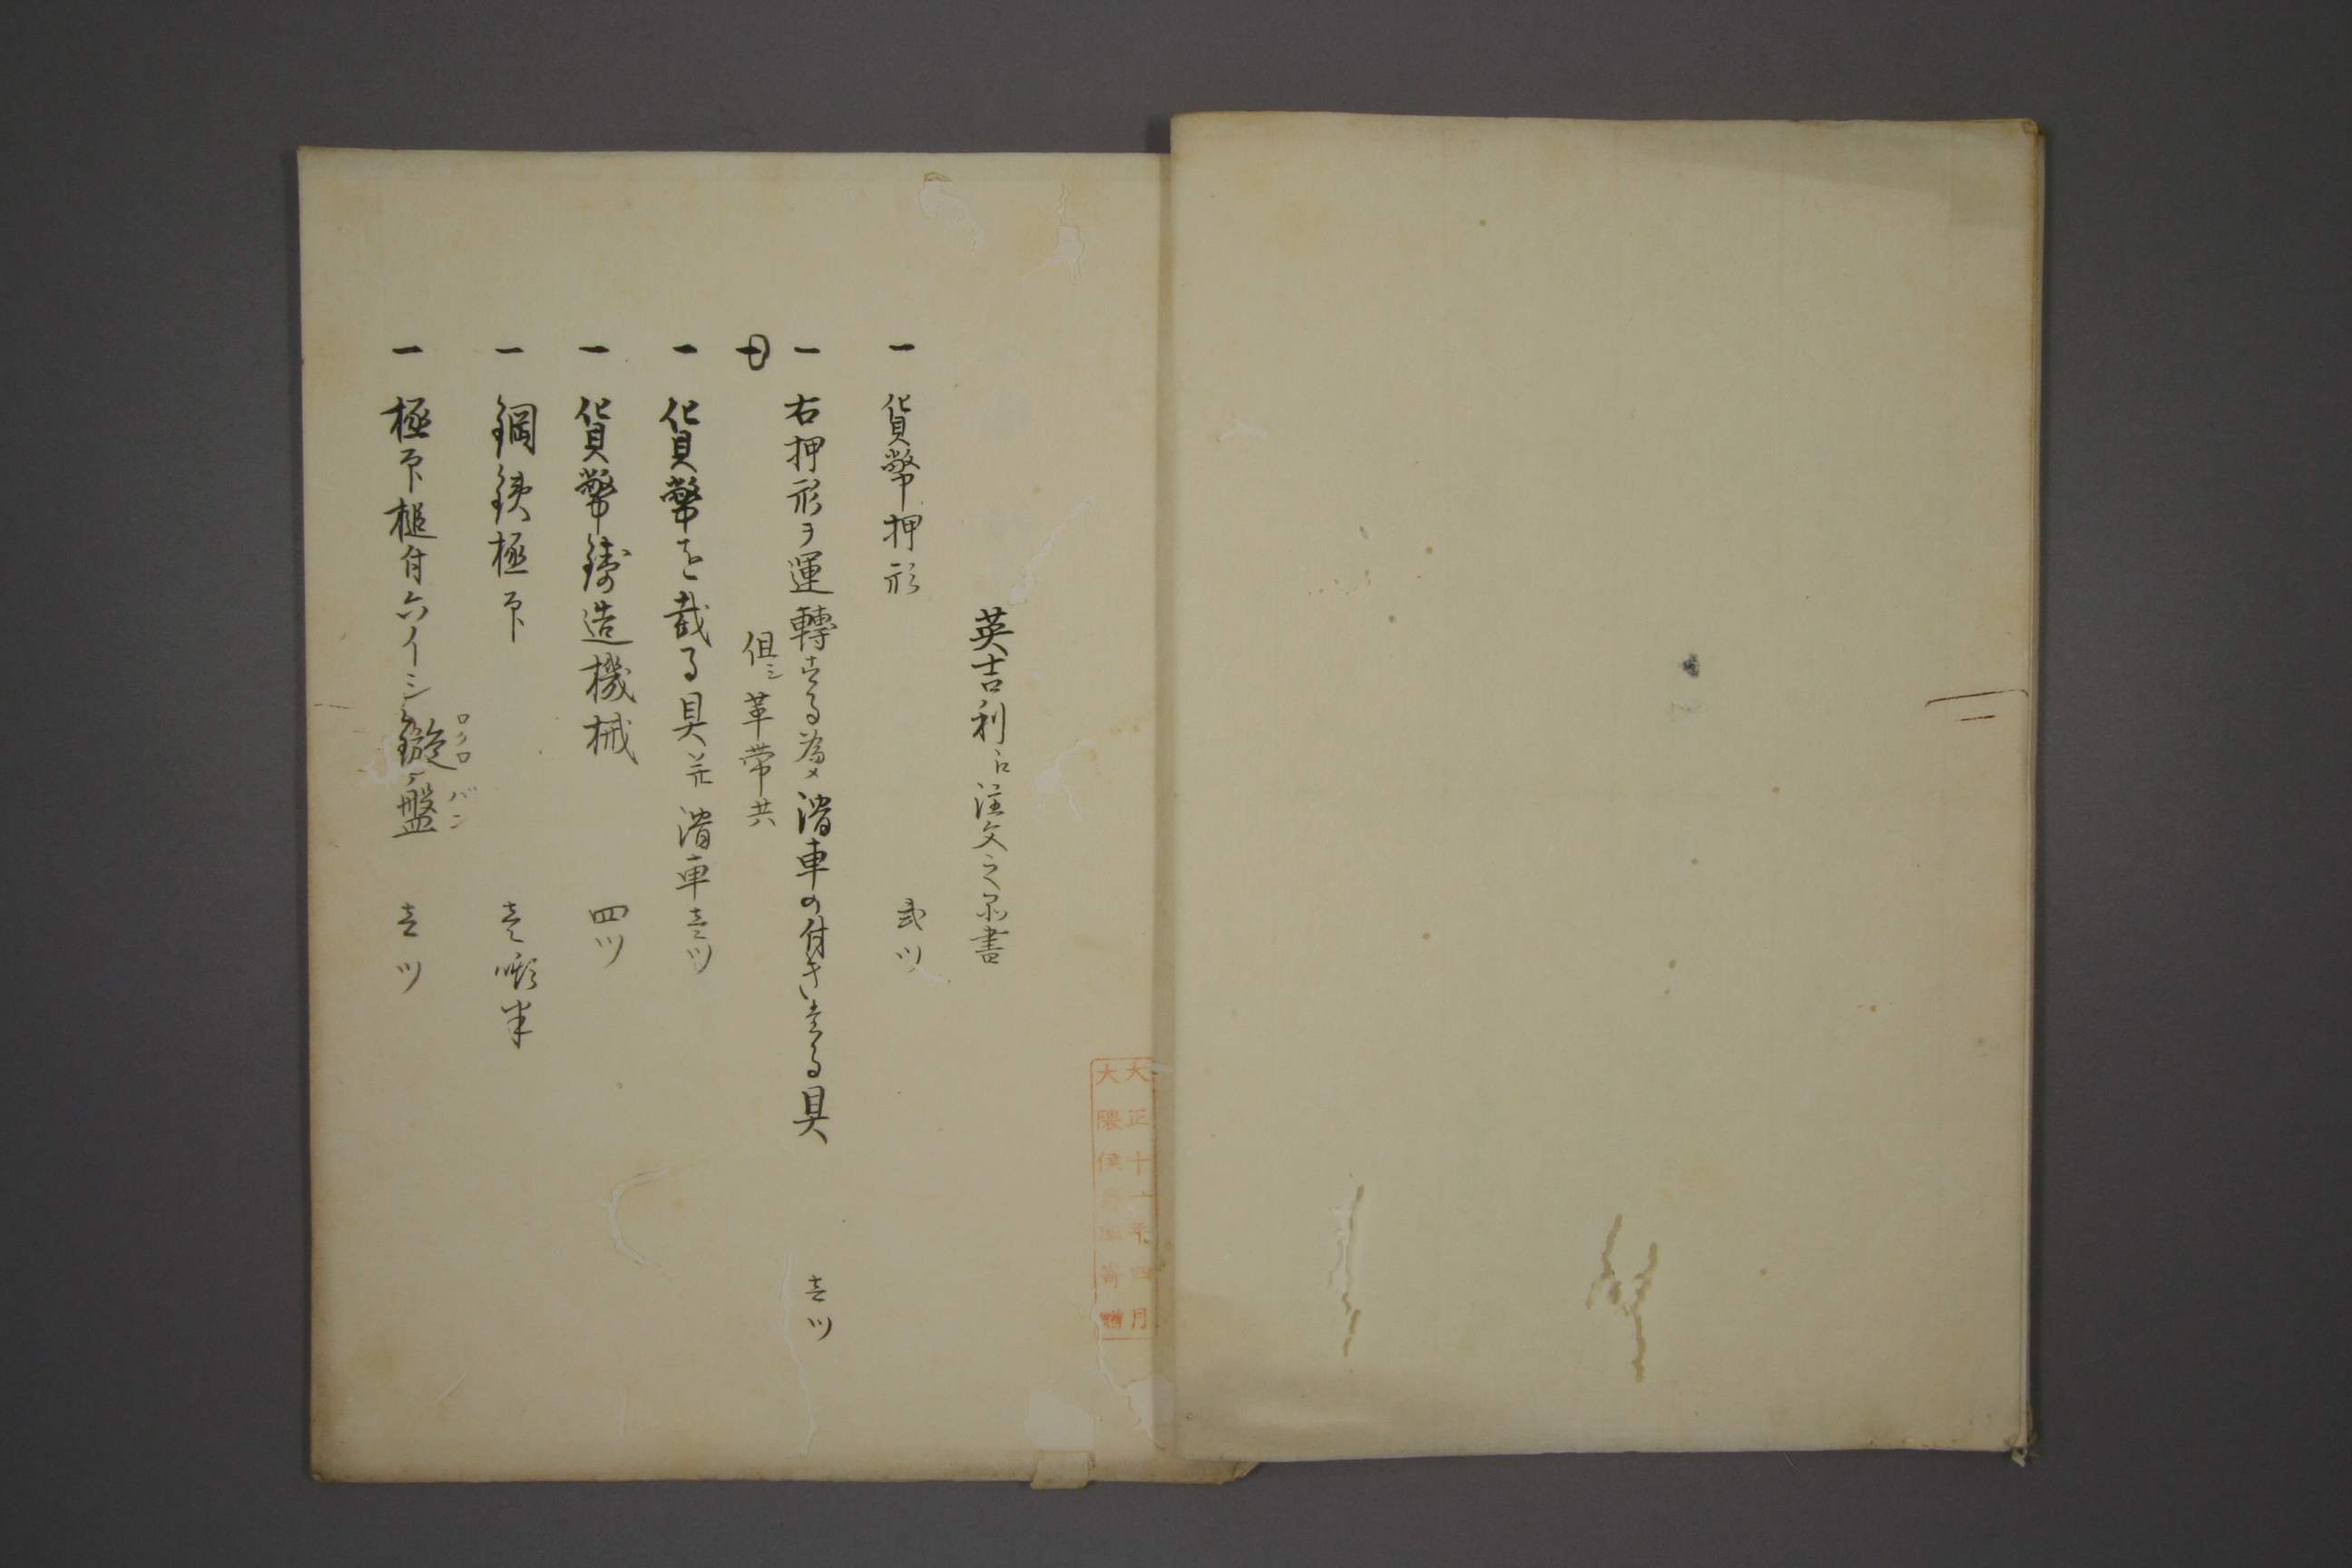 英吉利ゟ注文之品書
一 貨幣押形 弐ツ
一 右押形ヲ運轉する為メ滑車の付きたる具 壱ツ
但シ革帯共
一 貨幣を截る具并滑車壱ツ
一 貨幣鋳造機械 四ツ
一 鋼鉄極印 壱噸半
一 極印槌付六イーンシ鏇盤 壱ツ
ロクロ バン
大正十一年四月
大隈侯爵家寄贈